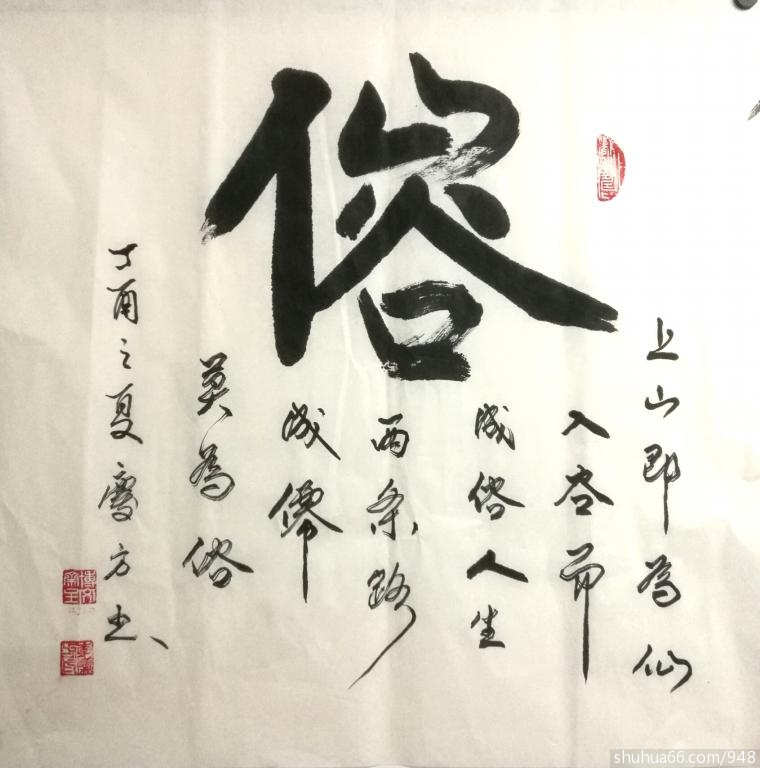 俗
上山即為仙
入谷而
成俗人生
两条路
成儒
莫為俗
丁酉之夏慶方书
shuhua66.com/948